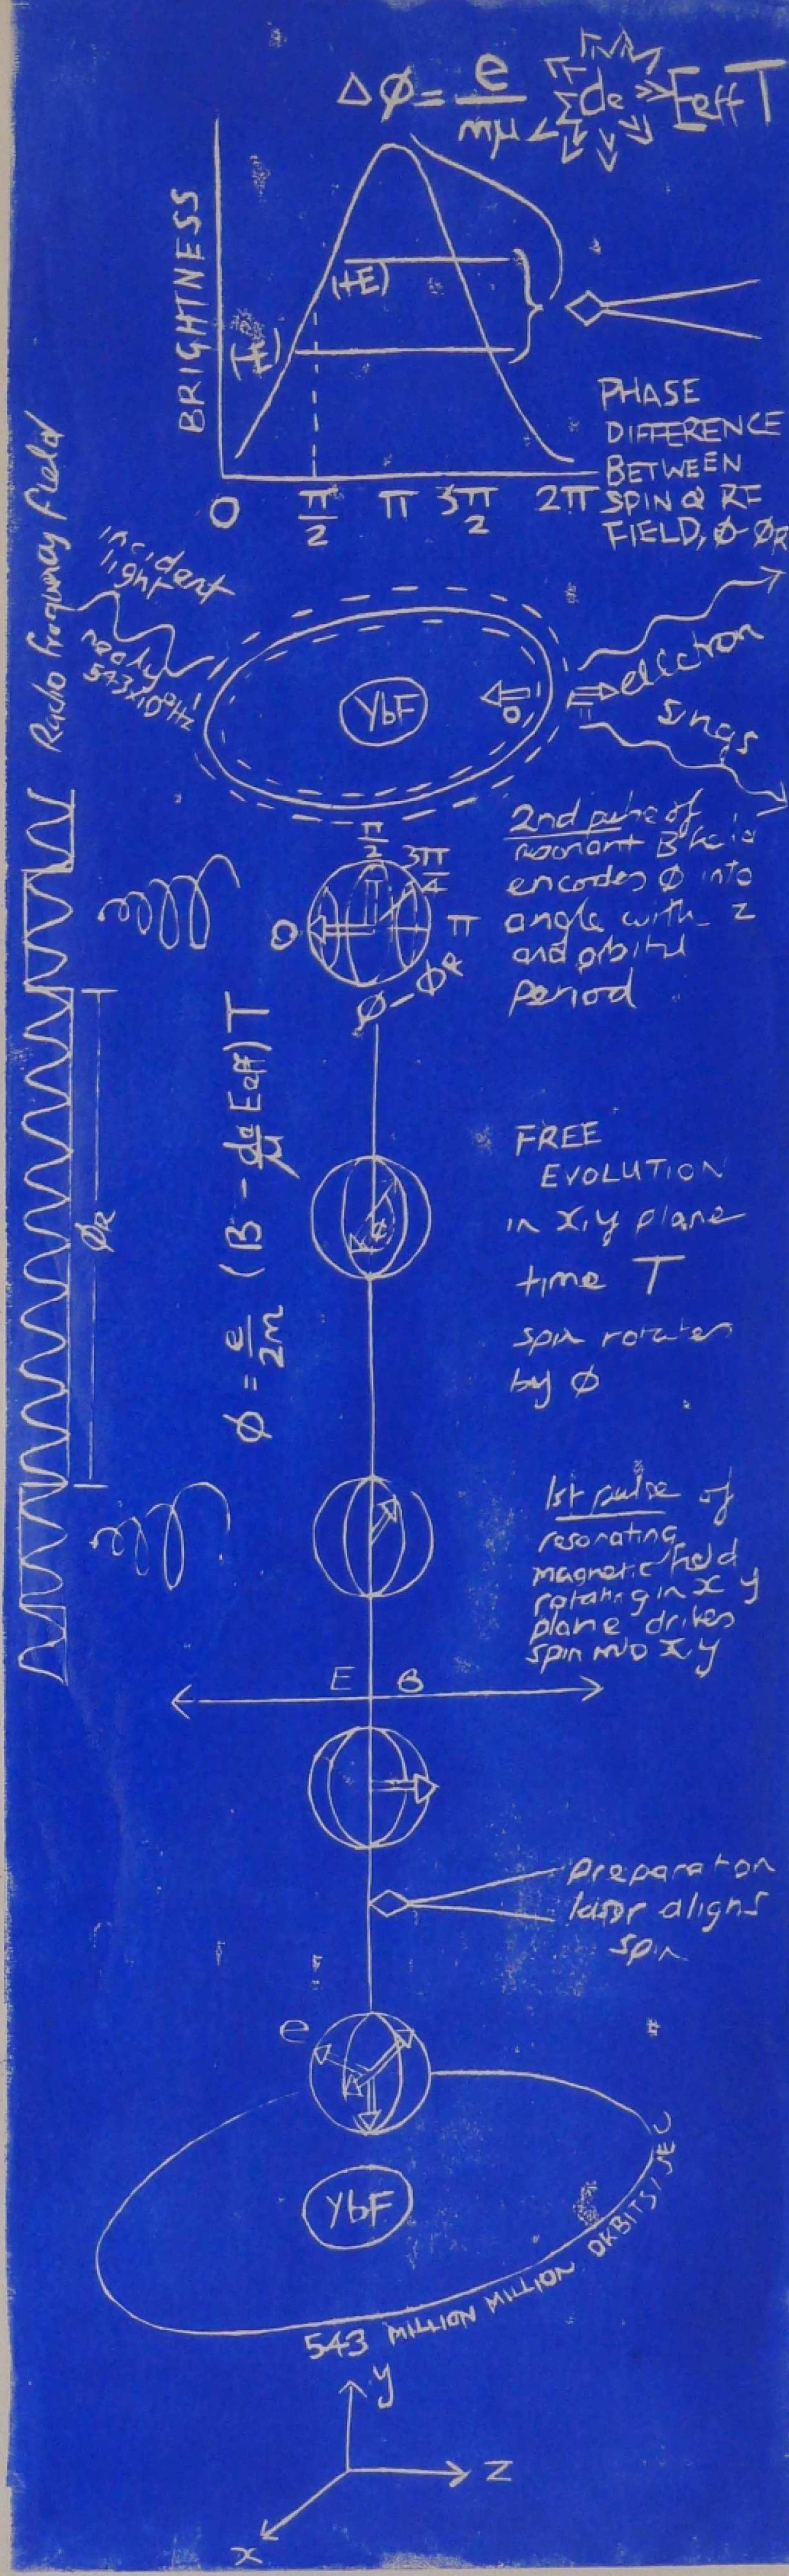 Δφ = e/mμ de Eeff T
BRIGHTNESS
(+E)
0 π/2 π 3π/2 2π
PHASE
DIFFERENCE
BETWEEN
SPIN & RF
FIELD, φ-φR
Radio frequency field
incident
light
nearly
543x10¹²Hz
YbF
electron
sings
2nd pulse of
resonant B field
encodes φ into
angle with z
and orbital
period
π/2
3π/4
0
π
φ-φR
φR
φ = e/2m (B - de/μ Eeff) T
FREE
EVOLUTION
in x,y plane
time T
spin rotates
by φ
1st pulse of
resonating
magnetic field
rotating in x y
plane drives
spin into x y
E B
Preparation
laser aligns
spin
e
YbF
543 MILLION MILLION ORBITS/SEC
y
z
x